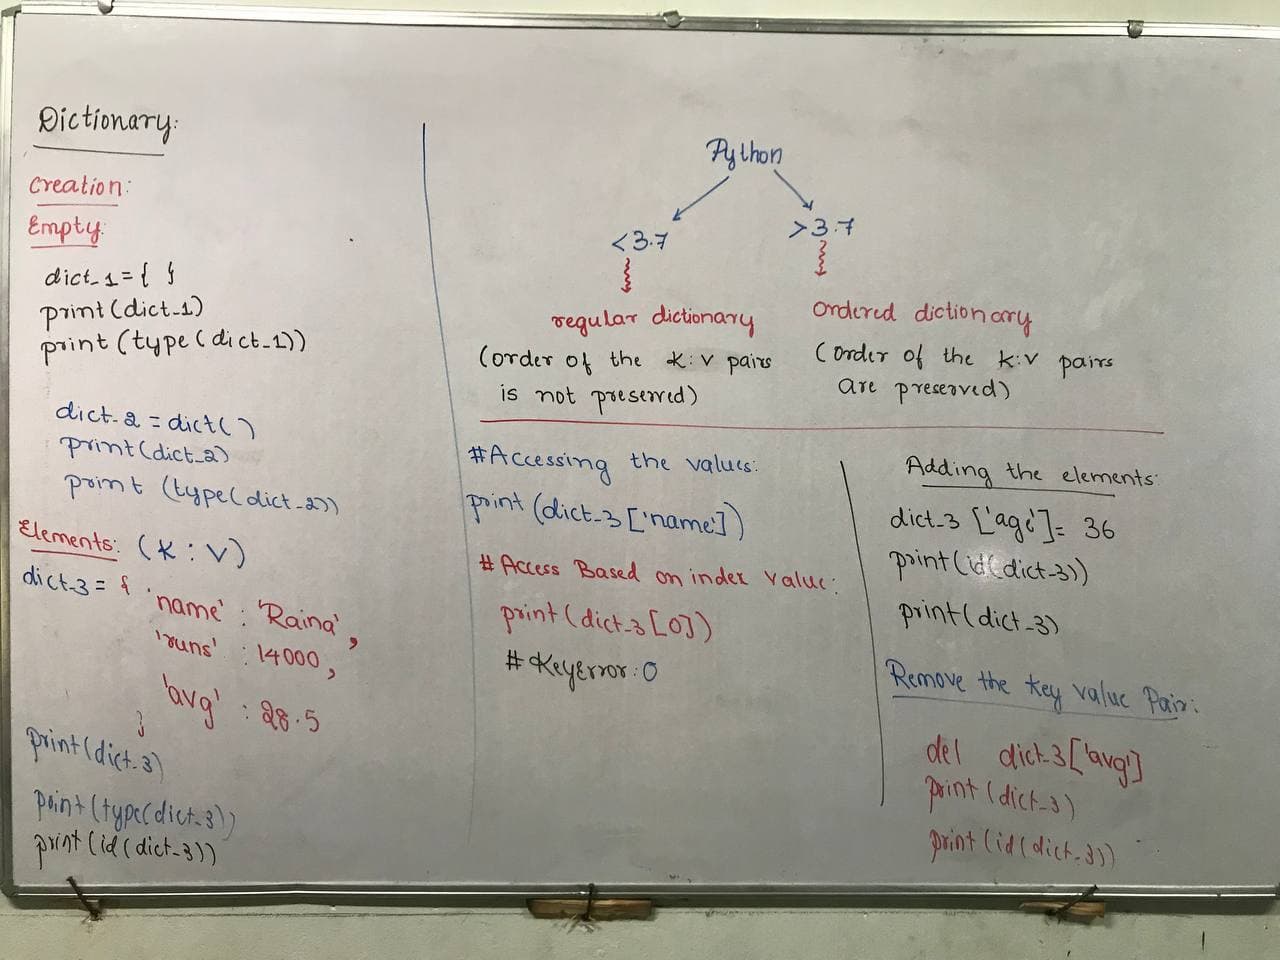 Dictionary:
Creation:
Empty:
dict_1 = { }
print(dict_1)
print (type (dict_1))
dict_2 = dict()
print(dict_2)
print (type(dict_2))
Elements: (K : V)
dict_3 = { 'name' : 'Raina',
'runs' : 14000,
'avg' : 28.5
}
print(dict_3)
print(type(dict_3))
print(id(dict_3))
Python
<3.7 >3.7
regular dictionary
(order of the K:V pairs
is not preserved)
Ordered dictionary
(order of the K:V pairs
are preserved)
#Accessing the values:
print (dict_3 ['name'])
# Access Based on index value:
print(dict_3[0])
# KeyError: 0
Adding the elements:
dict_3 ['age'] = 36
print(id(dict_3))
print(dict_3)
Remove the key value Pair:
del dict_3['avg']
print(dict_3)
print(id(dict_3))